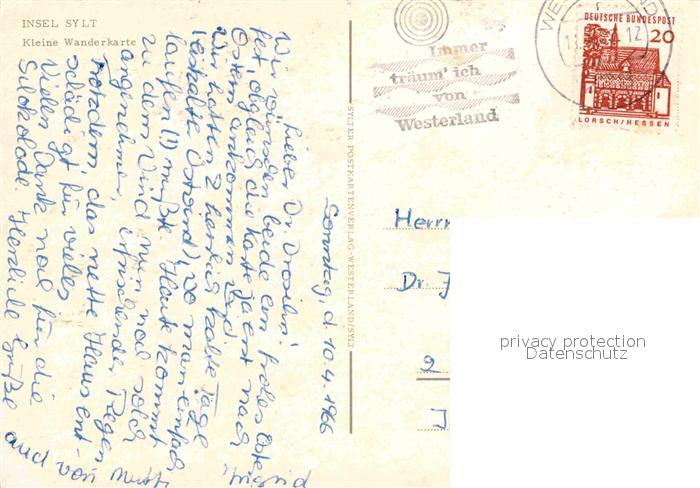 INSEL SYLT
Kleine Wanderkarte
Sonntag, d. 10.4.1966
Lieber Dr.
Wir wünschen beide ein frohes Oster-
fest, obgleich die Karte ja erst nach
Ostern ankommen wird.
Wir hatten 2 herrlich kalte Tage
(eiskalte Ostwind), wo man einfach
laufen (!) mußte. Heute kommt
zu dem Wind nun noch solch
angenehmer, erfrischender Regen
Trotzdem, das nette Haus ent-
schädigt für vieles
Vielen Dank noch für die
Schokolade Herzliche Grüße
und von Mutti
Ingrid
SYLTER POSTKARTENVERLAG-WESTERLAND/SYLT
Immer
träum' ich
von
Westerland
12
DEUTSCHE BUNDESPOST
20
LORSCH/HESSEN
Herrn
Dr. J
privacy protection
Datenschutz